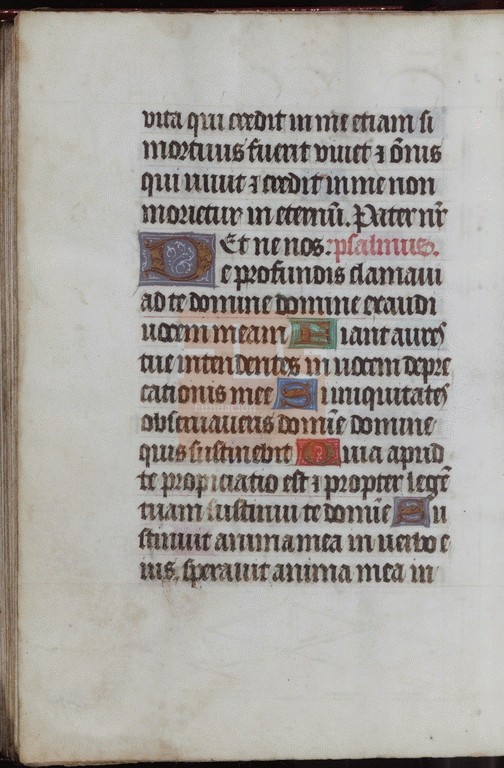 vita qui credit in me etiam si
mortuus fuerit viuet ⁊ om̄is
qui uiuit ⁊ credit in me non
morietur in eternū. Pater nr̄
Et ne nos. psalmus.
De profundis clamaui
ad te domine domine exaudi
uocem meam Fiant aures
tue intendentes in uocem depre
cationis mee Si iniquitates
obseruaueris domīe domine
quis sustinebit Quia apud
te propiciatio est ⁊ propter legē
tuam sustinui te domīe Su
stinuit anima mea in uerbo e
ius, sperauit anima mea in